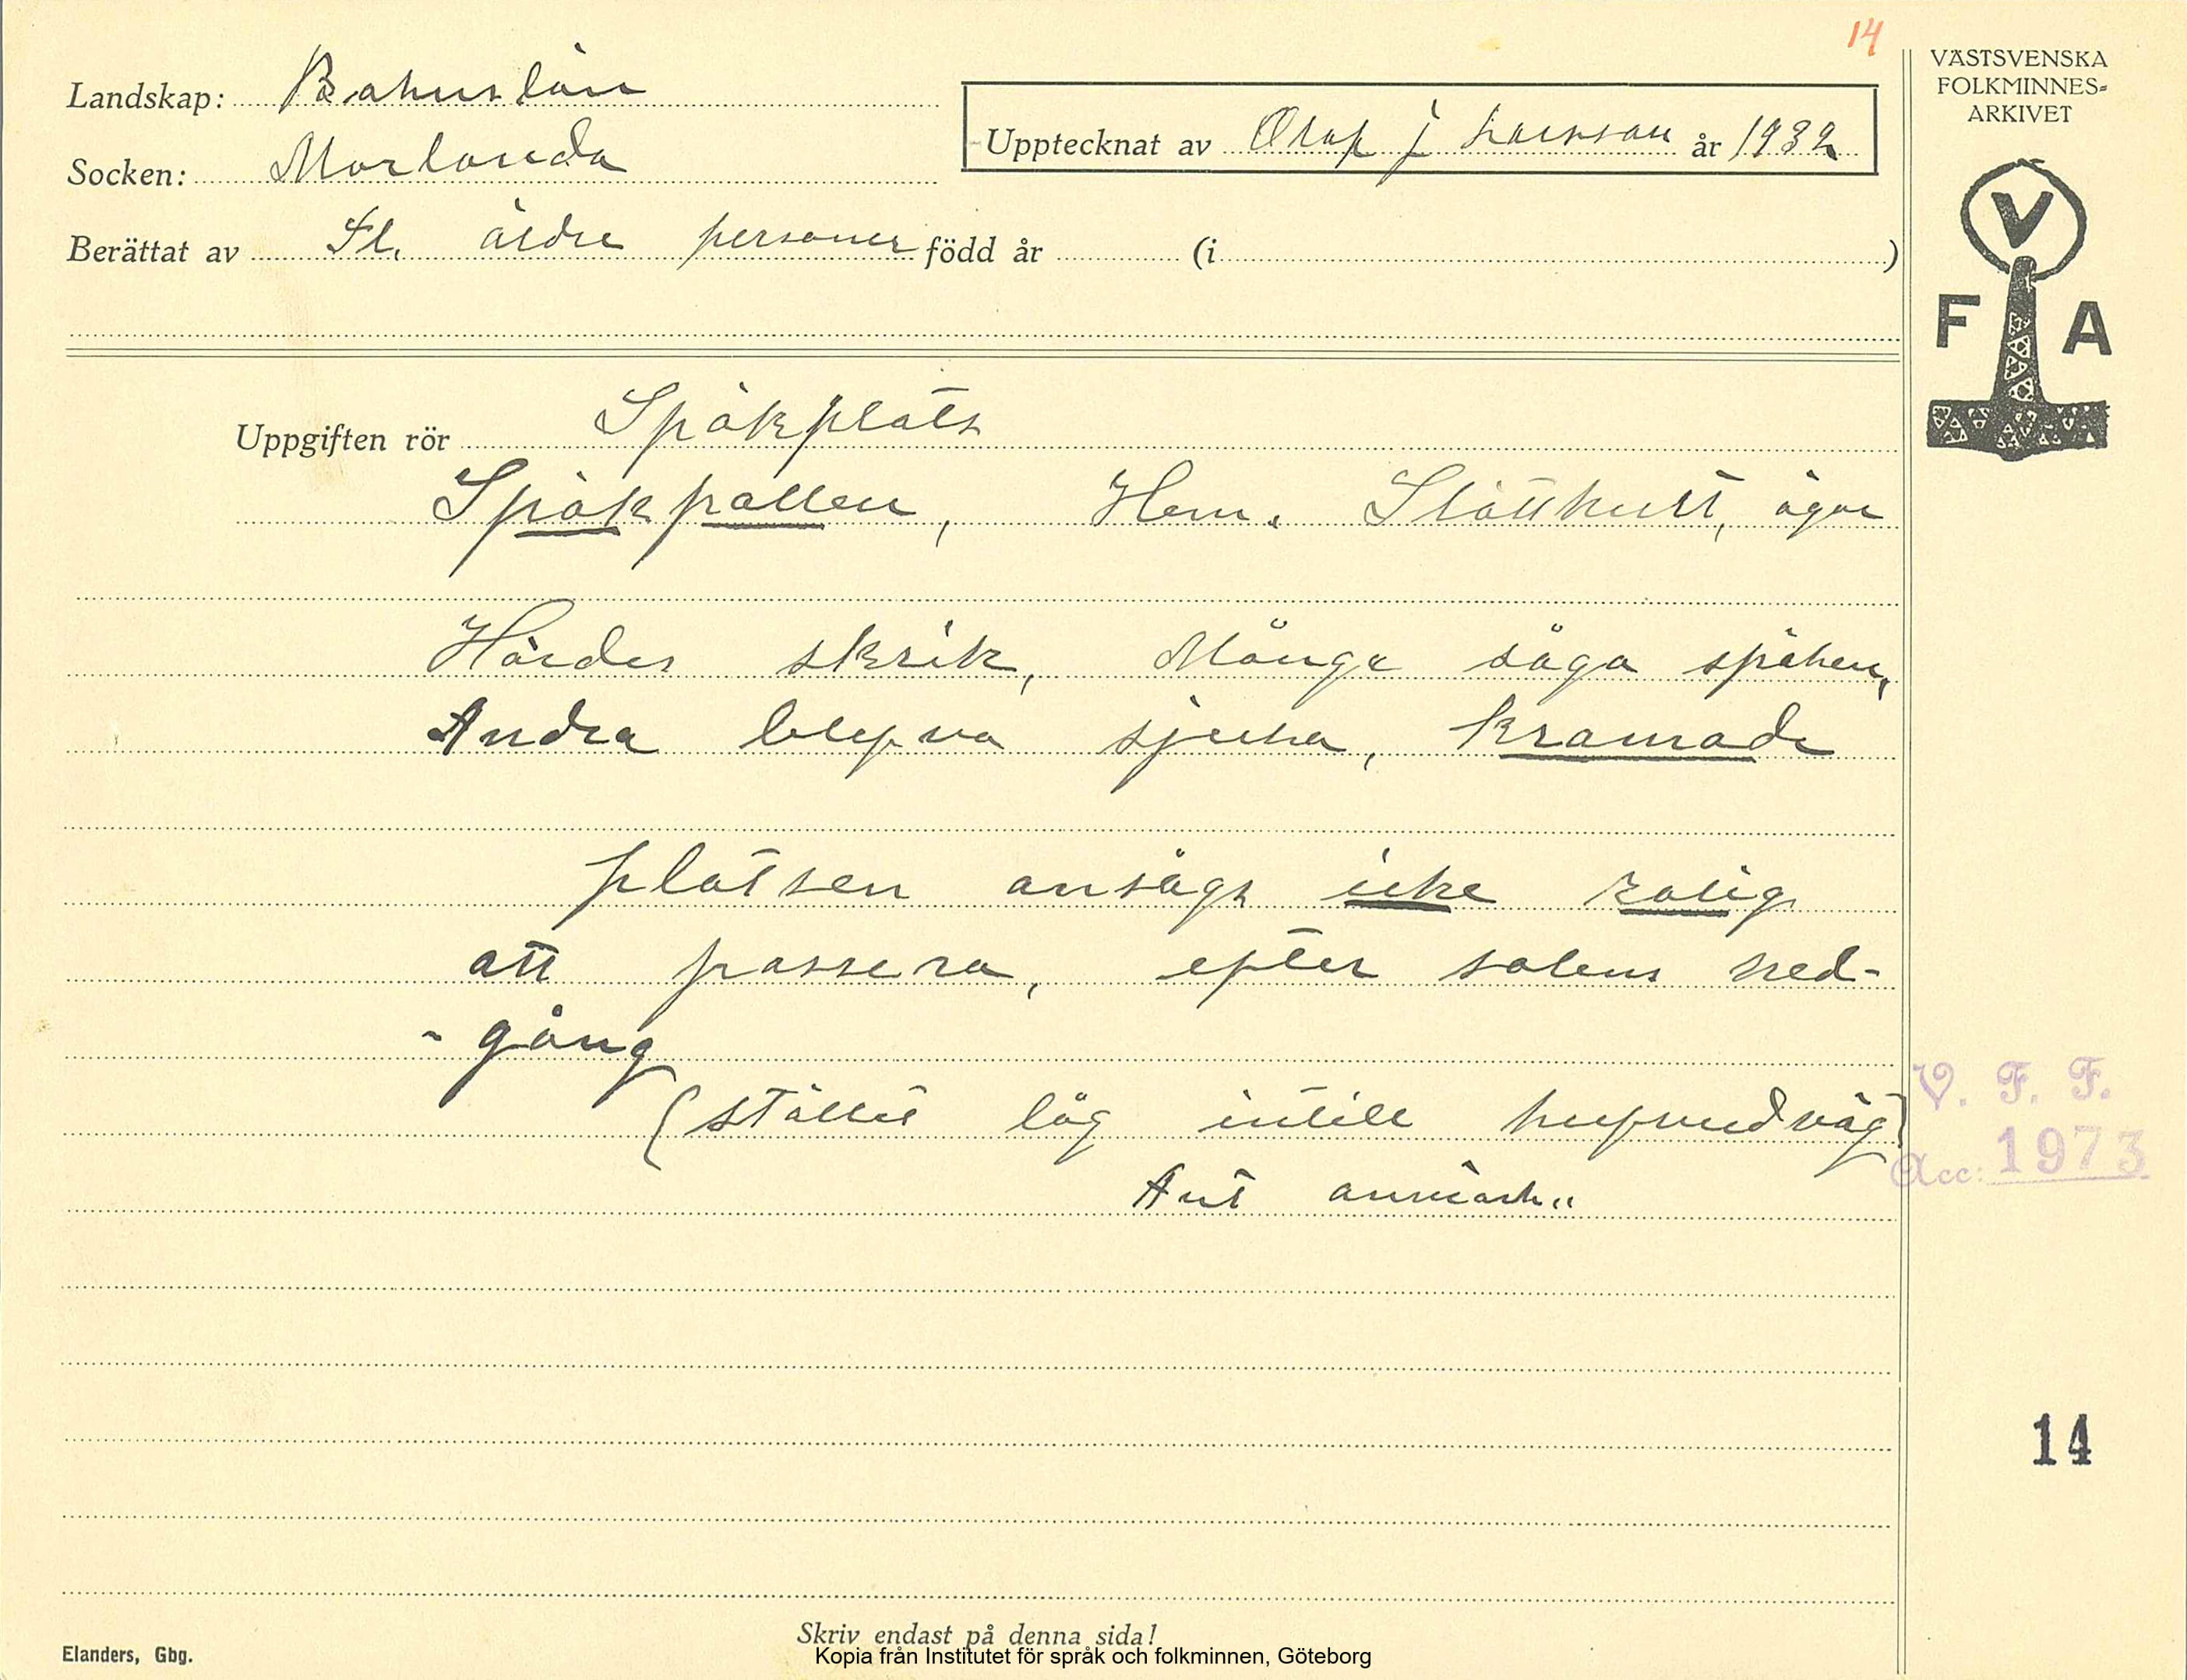 14
VÄSTSVENSKA
FOLKMINNES-
ARKIVET
Landskap: Bohuslän
Upptecknat av Olof J Larsson år 1932
Socken: Morlanda
Berättat av Fl. äldre personer född år (i )
V
F A
Uppgiften rör Spökplats
Spökpallen, Hem. Slätthult, ägor
Hördes skrik, Många såga spöken,
Andra blefvo sjuka, kramade
platsen ansågs icke rolig
att passera, efter solens ned-
- gång
(stället låg intill hufvudväg)
Ant anmärk.
V. F. F.
Acc: 1973
14
Skriv endast på denna sida!
Elanders, Gbg.
Kopia från Institutet för språk och folkminnen, Göteborg